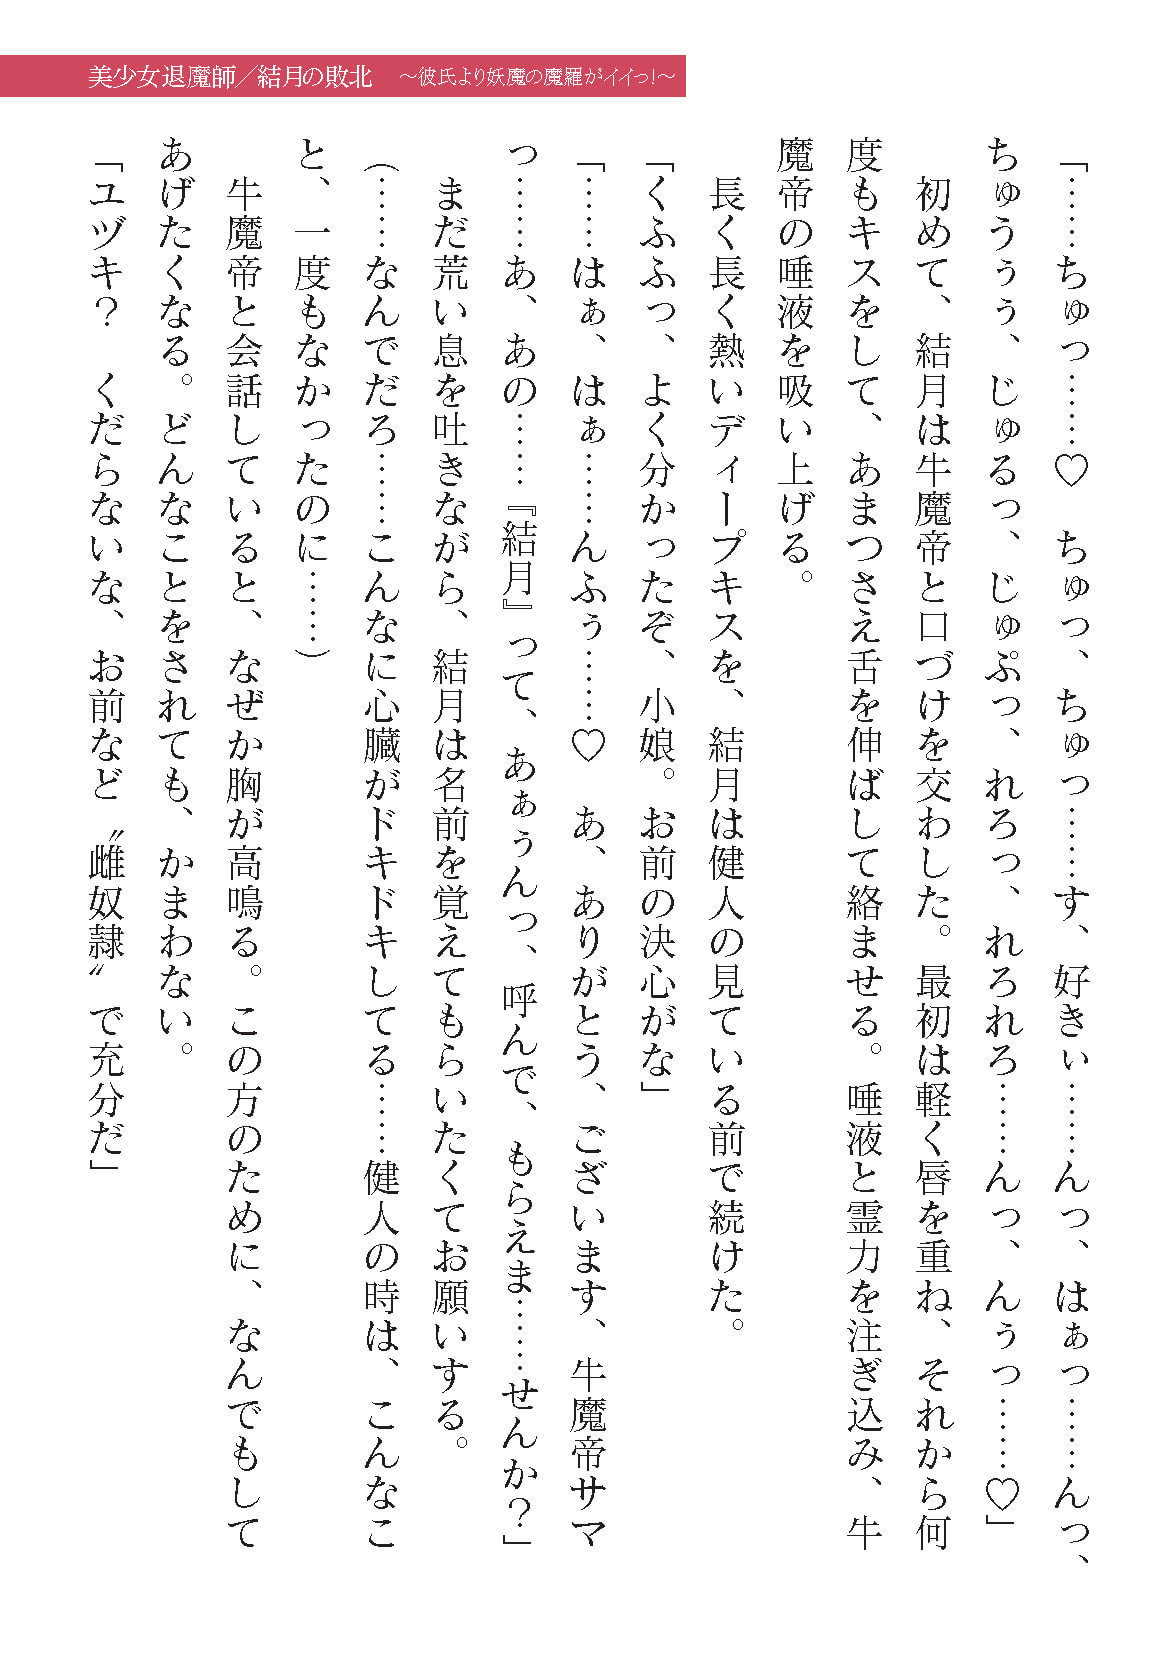 美少女退魔師／結月の敗北　～彼氏より妖魔の魔羅がイイっ！～
「……ちゅっ……♡　ちゅっ、ちゅっ……す、好きぃ……んっ、はぁっ……んっ、
ちゅうぅぅ、じゅるっ、じゅぷっ、れろっ、れろれろ……んっ、んぅっ……♡」
　初めて、結月は牛魔帝と口づけを交わした。最初は軽く唇を重ね、それから何
度もキスをして、あまつさえ舌を伸ばして絡ませる。唾液と霊力を注ぎ込み、牛
魔帝の唾液を吸い上げる。
　長く長く熱いディープキスを、結月は健人の見ている前で続けた。
「くふふっ、よく分かったぞ、小娘。お前の決心がな」
「……はぁ、はぁ……んふぅ……♡　あ、ありがとう、ございます、牛魔帝サマ
っ……あ、あの……『結月』って、あぁぅんっ、呼んで、もらえま……せんか？」
　まだ荒い息を吐きながら、結月は名前を覚えてもらいたくてお願いする。
（……なんでだろ……こんなに心臓がドキドキしてる……健人の時は、こんなこ
と、一度もなかったのに……）
　牛魔帝と会話していると、なぜか胸が高鳴る。この方のために、なんでもして
あげたくなる。どんなことをされても、かまわない。
「ユヅキ？　くだらないな、お前など〝雌奴隷〟で充分だ」